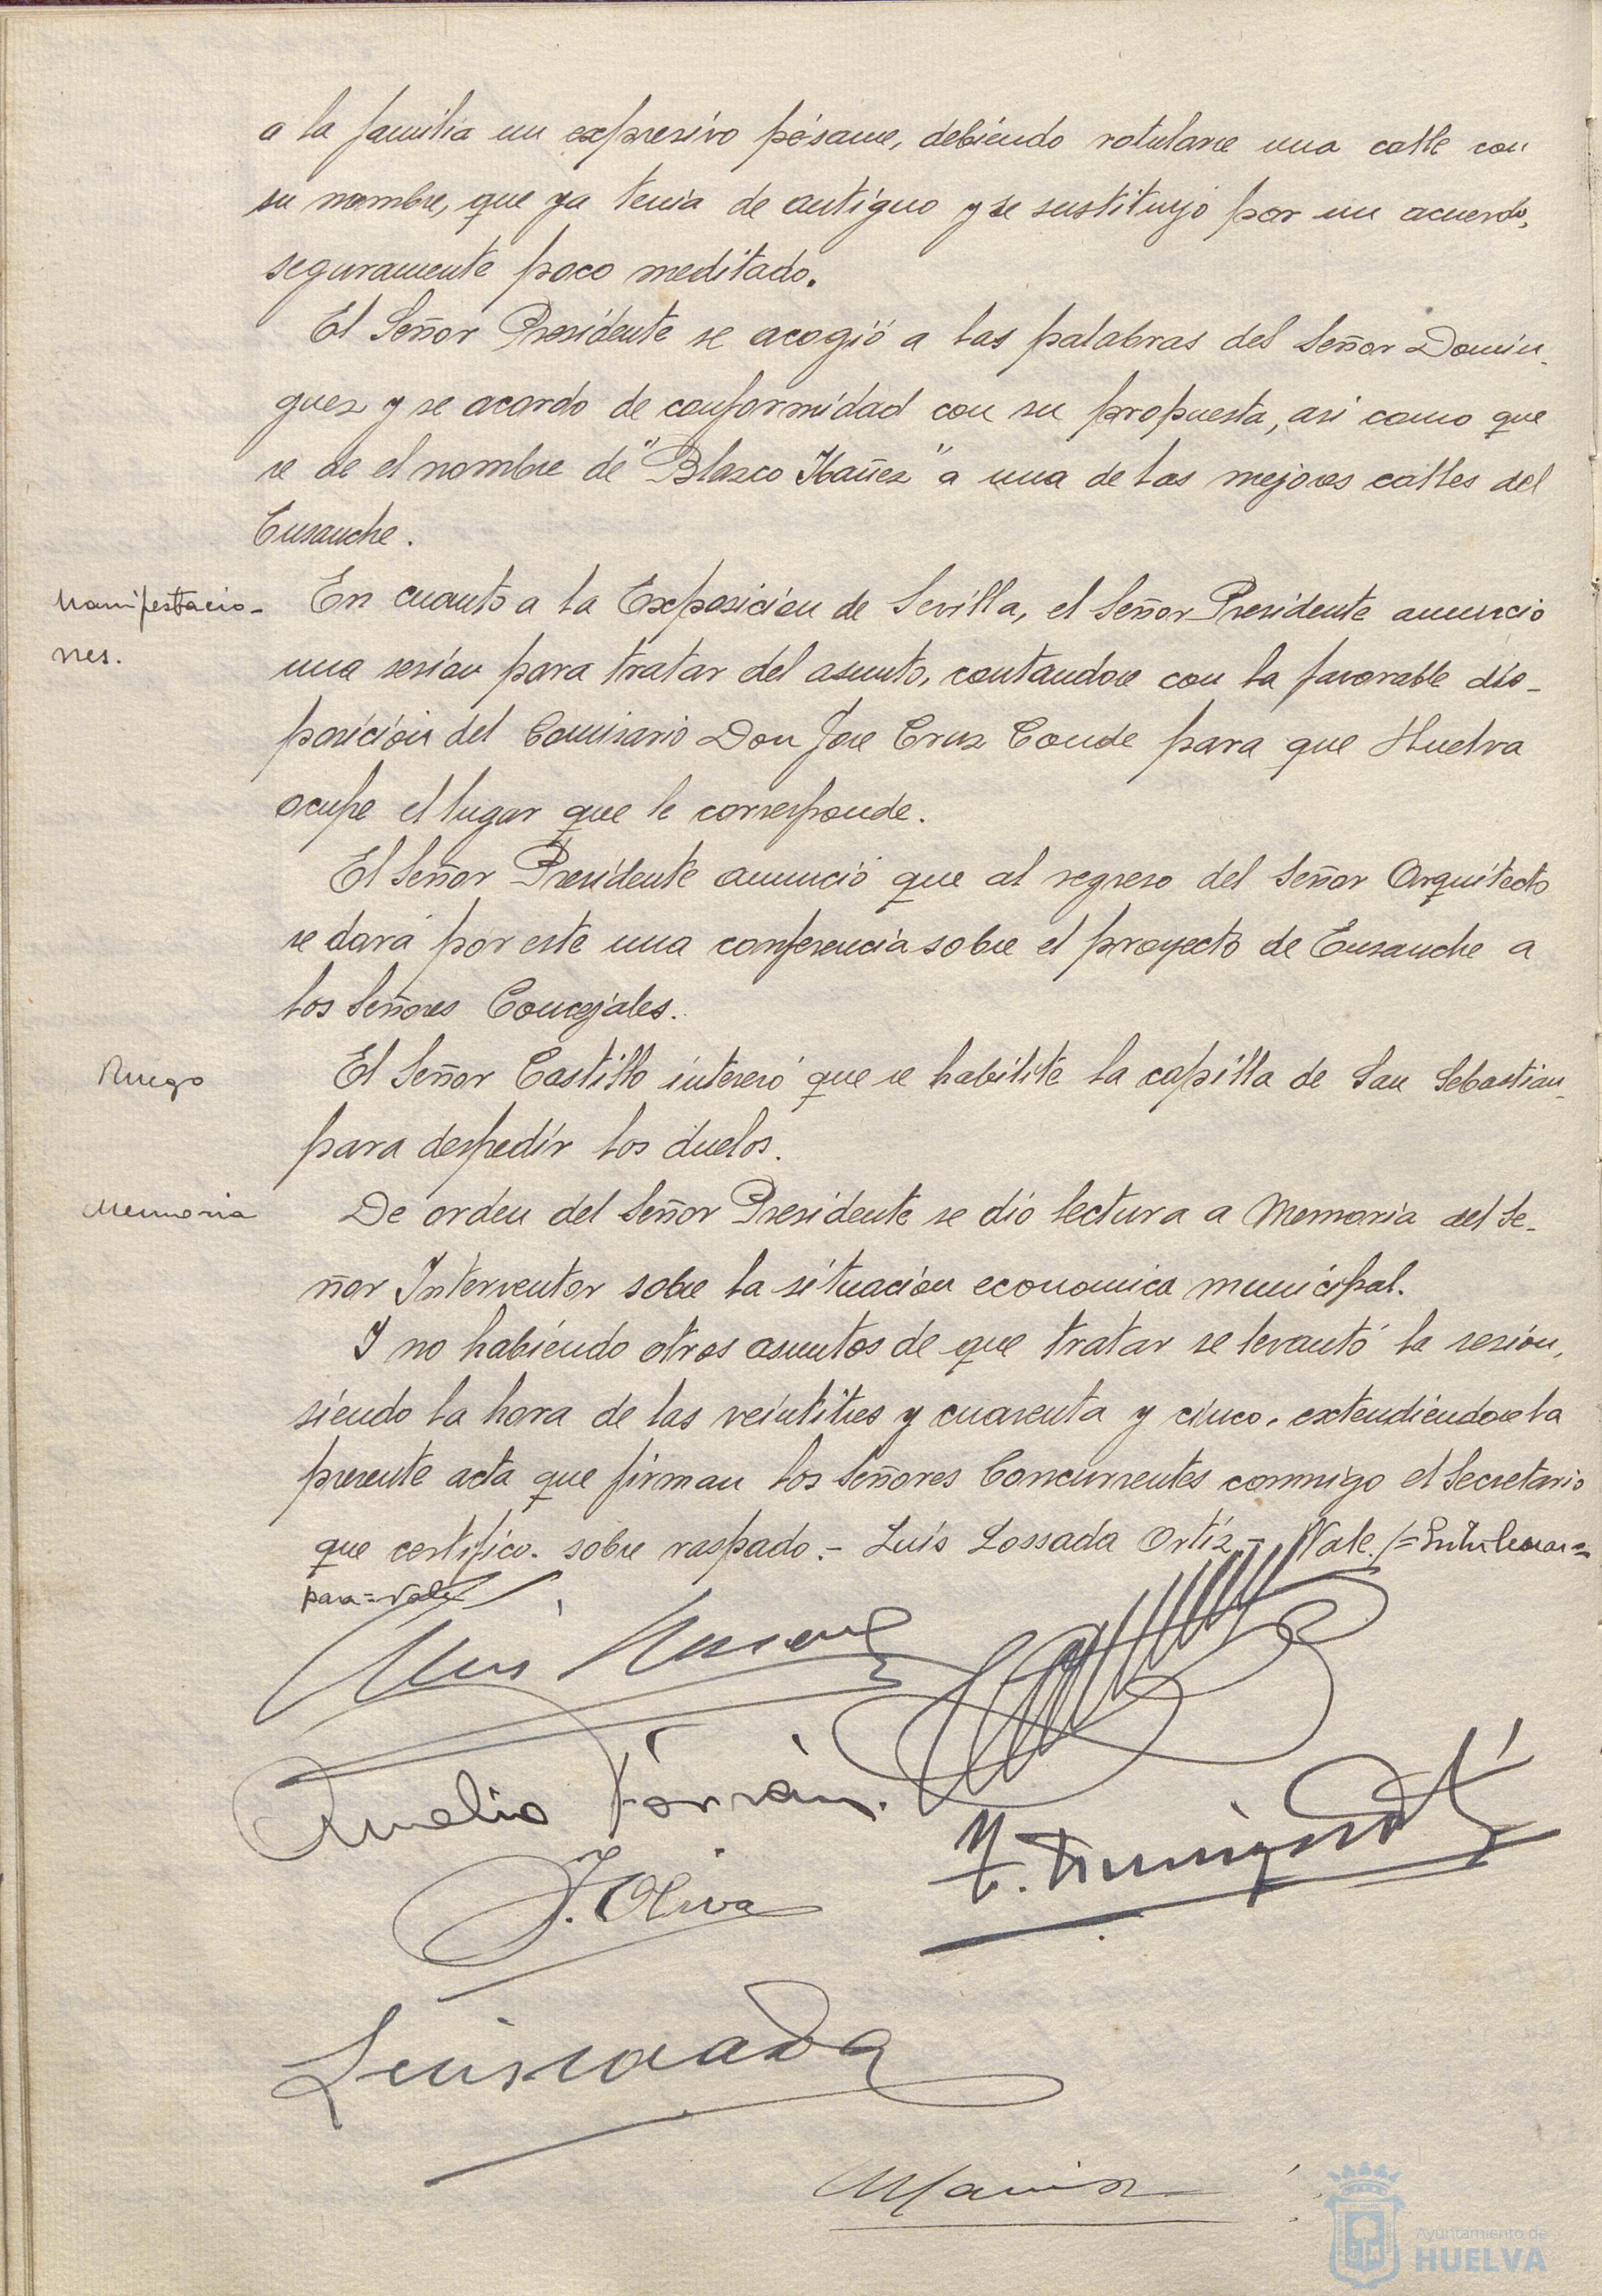 a la familia un expresivo pésame, debiendo rotularse una calle con
su nombre, que ya tenia de antiguo y se sustituyó por un acuerdo,
seguramente poco meditado.
El Señor Presidente se acogió a las palabras del Señor Domin-
guez y se acordo de conformidad con su propuesta, asi como que
se de el nombre de "Blasco Ibañez" a una de las mejores calles del
Ensanche.
Manifestacio-
nes.
En cuanto a la Exposicion de Sevilla, el Señor Presidente anuncio
una sesion para tratar del asunto, contandose con la favorable dis-
posición del Comisario Don Jose Cruz Conde para que Huelva
ocupe el lugar que le corresponde.
El Señor Presidente anunció que al regreso del Señor Arquitecto
se dará por este una conferencia sobre el proyecto de Ensanche a
los Señores Concejales.
Ruego
El Señor Castillo interesó que se habilite la capilla de San Sebastian
para despedir los duelos.
Memoria
De orden del Señor Presidente se dió lectura a Memoria del Se-
ñor Interventor sobre la situacion economica municipal.
Y no habiendo otros asuntos de que tratar se levantó la sesion,
siendo la hora de las veintitres y cuarenta y cinco, extendiendose la
presente acta que firman los Señores Concurrentes conmigo el Secretario
que certifico. sobre raspado.- Luis Lossada Ortiz - Vale.
para = Vale
Amelio Terrán.
J. Oliva
Ayuntamiento de
HUELVA